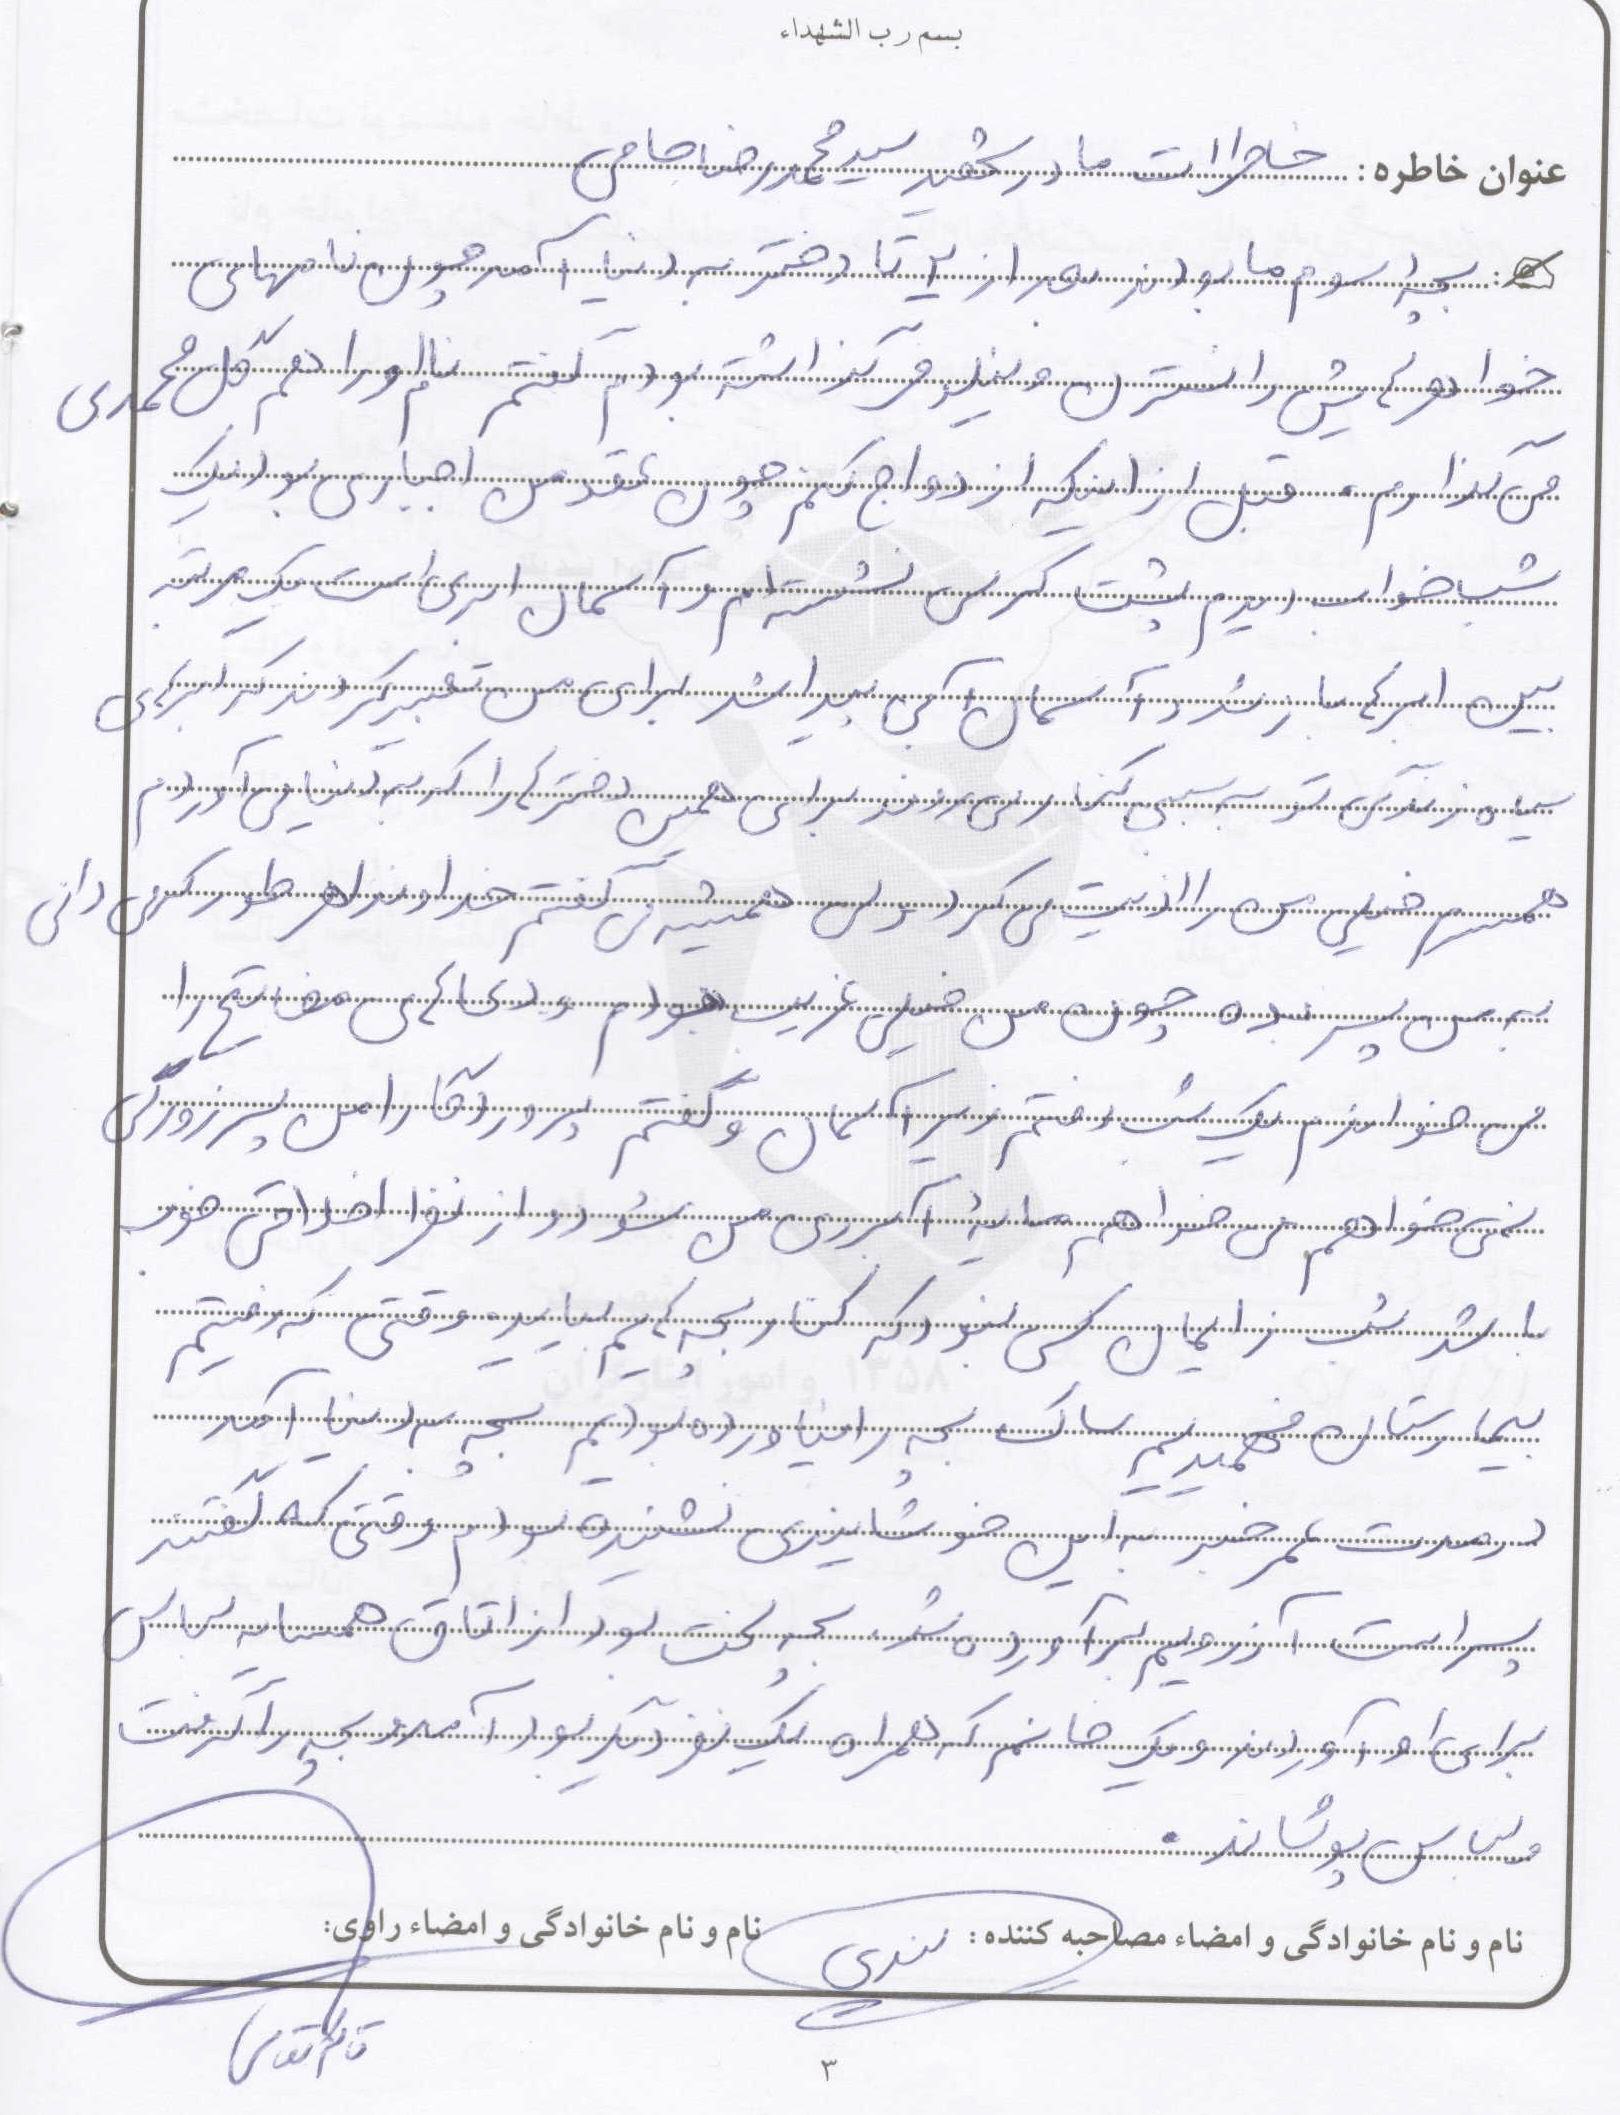 بسم رب الشهداء
عنوان خاطره: خاطرات مادر شهید سید محمدرضا جامی
بچه سوم ما بودند بعد از ۲ تا دختر به دنیا آمد چون نامهای
خواهرهایش را نسترن و نیلوفر گذاشته بودم گفتم نام او را هم گل محمدی
می گذارم. قبل از اینکه ازدواج کنم چون عقد من اجباری بود یک
شب خواب دیدم پشت کرسی نشسته ام و آسمان ابری است یک مرتبه
بین ابرها باز شد و آسمان آبی پیدا شد برای من تعبیر کردند که ابرهای
سیاه زندگی تو به سببی کنار می روند برای همین دخترها را که به دنیا می آوردم
همسرم خیلی من را اذیت می کرد ولی همیشه می گفتم خداوندا هر طور که می دانی
به من پسر بده چون من خیلی غریب بودم و دعاهای مفاتیح را
می خواندم یک شب رفتم زیر آسمان و گفتم پروردگارا من پسر زورگی
نمی خواهم می خواهم مایۀ آبروی من شود و از نظر اخلاقی خوب
باشد شب زایمان کسی نبود که کنار بچه هایم بیاید. وقتی که رفتیم
بیمارستان فهمیدیم ساک بچه را نیاورده بودیم بچه به دنیا آمد
در مدت عمر خبر به این خوشایندی نشنیده بودم وقتی که گفتند
پسر است آرزویم برآورده شد. بچه لخت بود از اتاق همسایه لباس
برای او آوردند و یک خانم که همراه یک نفر دیگر بود آمد و بچه را گرفت
و لباس پوشاند.
نام و نام خانوادگی و امضاء مصاحبه کننده: نام و نام خانوادگی و امضاء راوی:
۳